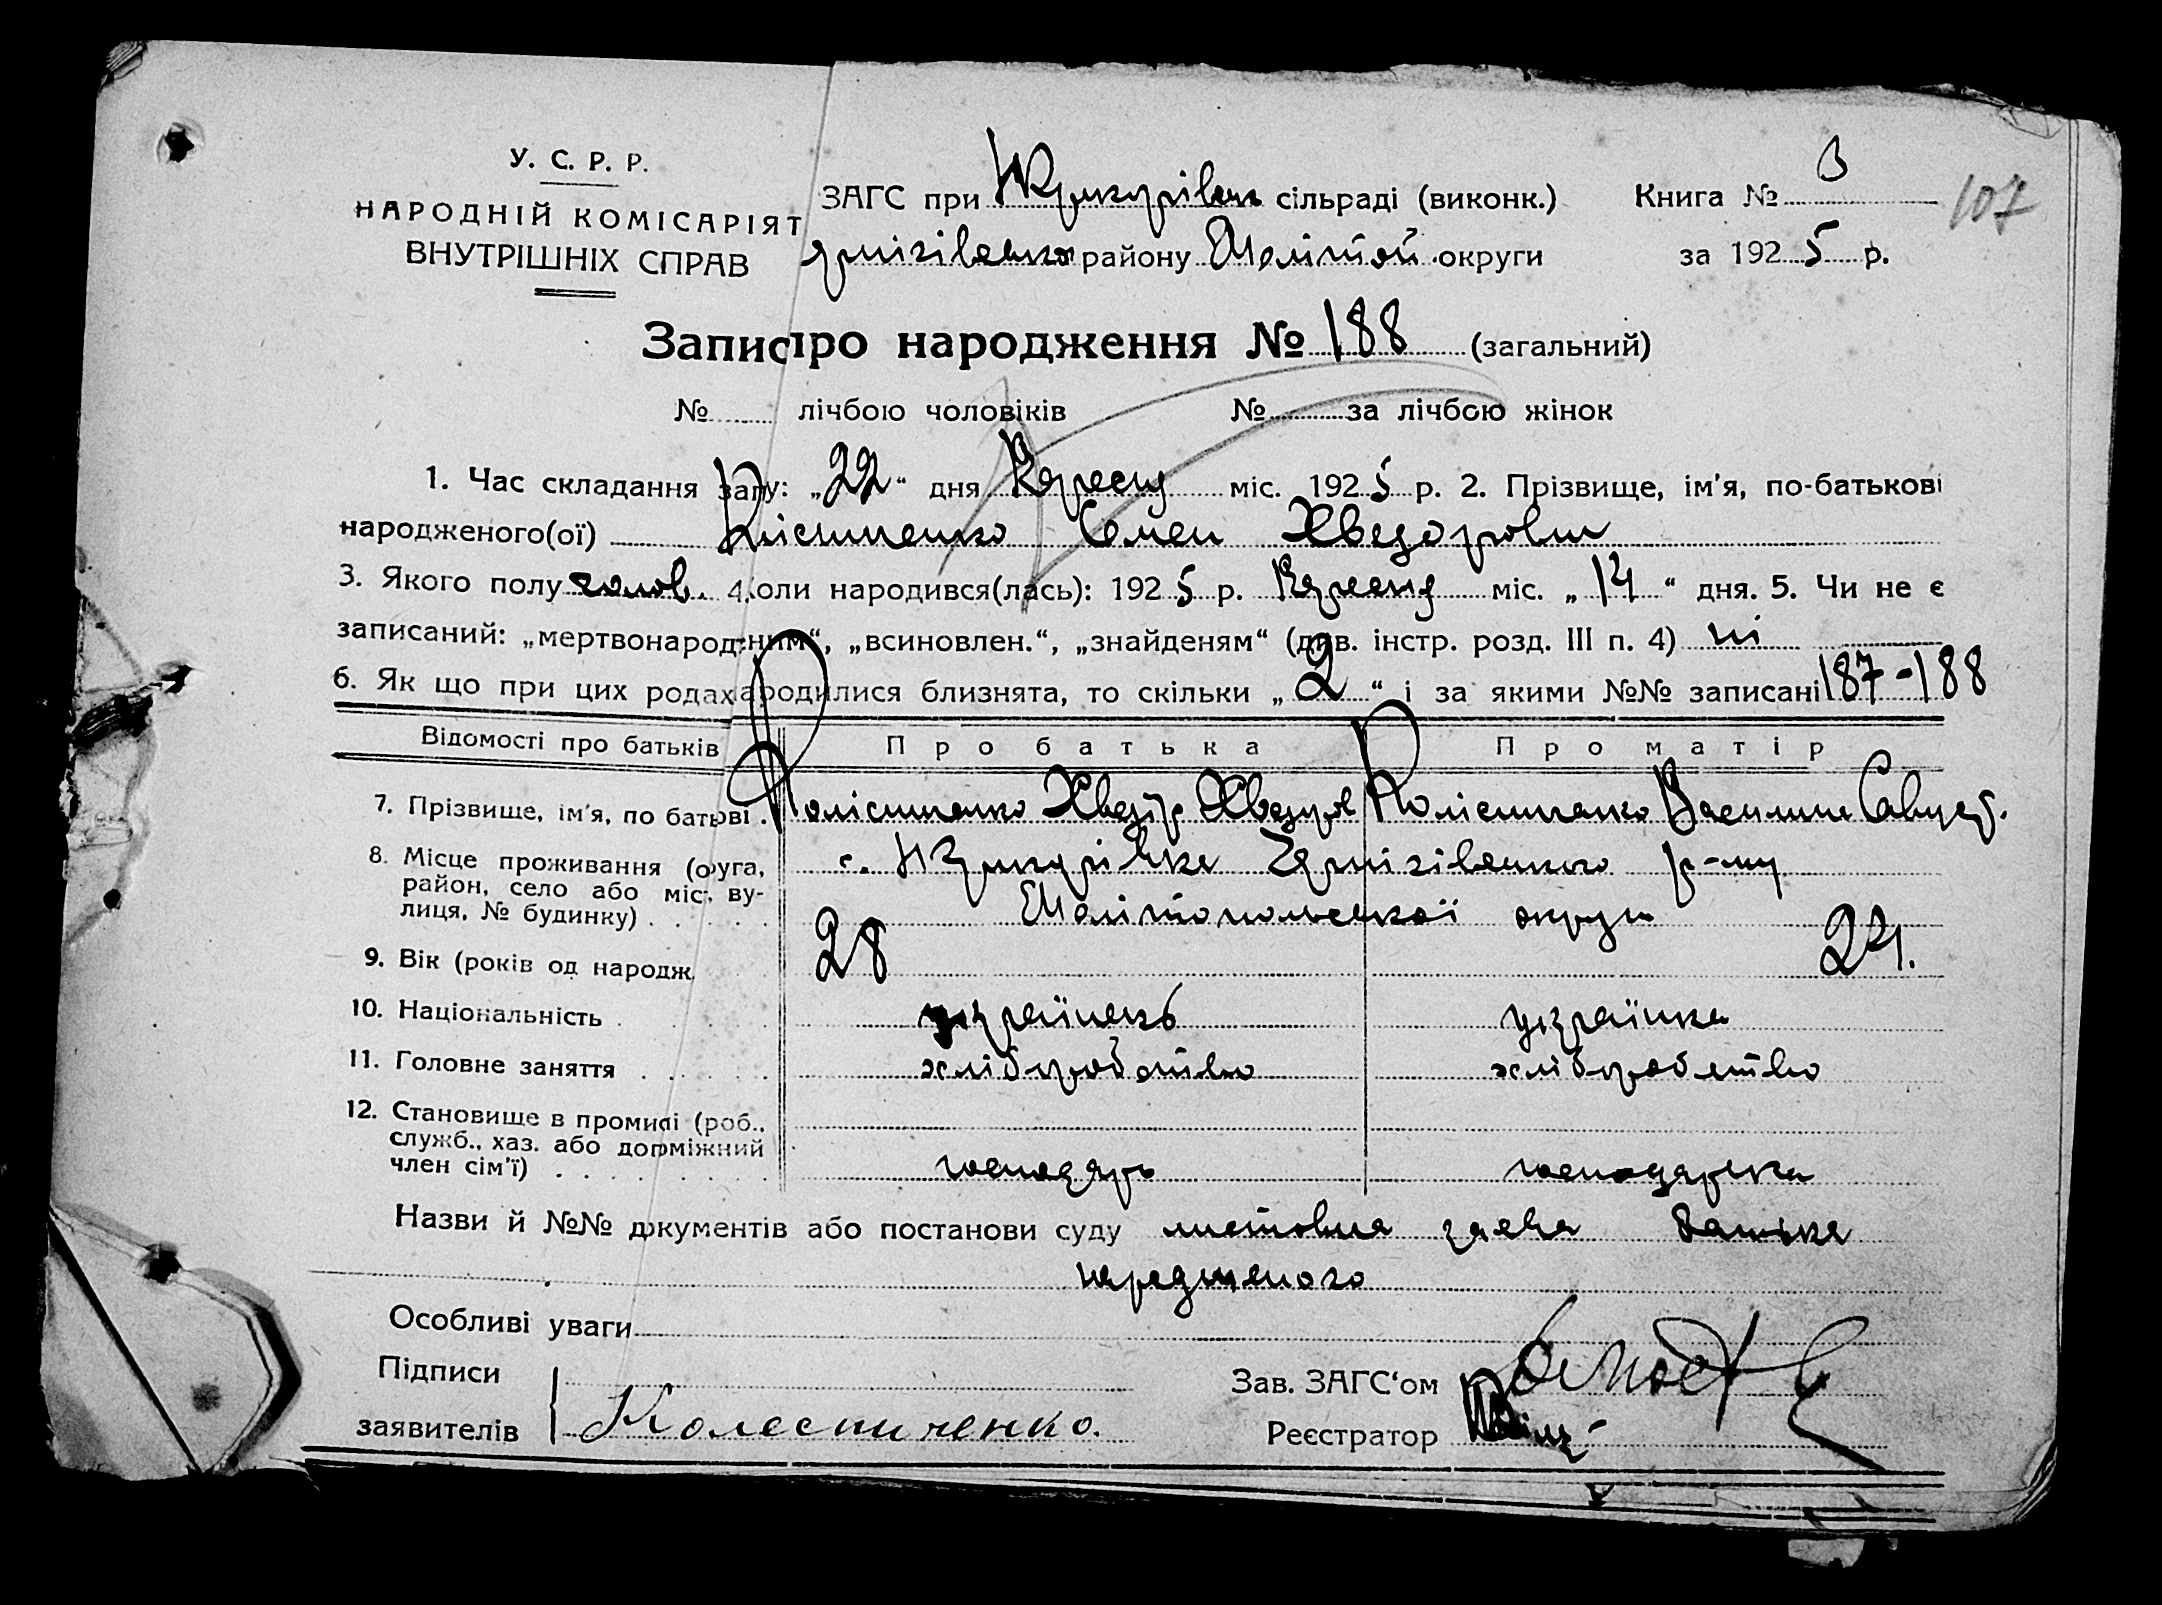 У. С. Р. Р.
НАРОДНІЙ КОМІСАРІЯТ
ВНУТРІШНІХ СПРАВ
ЗАГС при сільраді (виконк.)
району Мелітоп округи
Книга № 3
за 1925 р.
107
Запис про народження № 188 (загальний)
№ лічбою чоловіків № за лічбою жінок
1. Час складання запу: „22“ дня Вересня міс. 1925 р. 2. Прізвище, ім'я, по-батькові
народженого(ої) Семен Хведорович
3. Якого полу чолов. 4. Коли народився(лась): 1925 р. Вересня міс. „14“ дня. 5. Чи не є
записаний: „мертвонародним“, „всиновлен.“, „знайденям“ (див. інстр. розд. III п. 4) ні
6. Як що при цих родах народилися близнята, то скільки „2“ і за якими №№ записані 187-188
Відомості про батьків Про батька Про матір
7. Прізвище, ім'я, по батькові Хведір Хведоров Василина
8. Місце проживання (округа, район, село або місто, вулиця, № будинку) с. Чернігівського р-ну
Мелітопольської округи
9. Вік (років од народж. 28 24.
10. Національність українець українка
11. Головне заняття хліборобство хліборобство
12. Становище в промислі (роб., служб., хаз. або допоміжний член сім'ї) господарь господарька
Назви й №№ документів або постанови суду заява батька
народженого
Особливі уваги
Підписи
заявителів Колесниченко.
Зав. ЗАГС'ом
Реєстратор